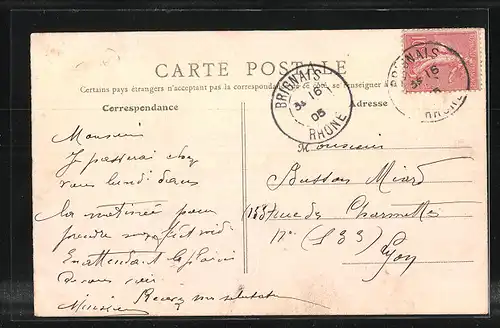 CARTE POSTALE
Certains pays étrangers n'acceptent pas la correspondance
se renseigner à
Correspondance
Adresse
BRIGNAIS
16
05
RHONE
BRIGNAIS
16
05
RHONE
Monsieur
Je passerai chez
vous lundi dans
la matinée pour
prendre
En attendant le plaisir
de vous voir
Monsieur Recevez mes salutations
Monsieur
Buston
rue des Charmettes
n° (133)
Lyon